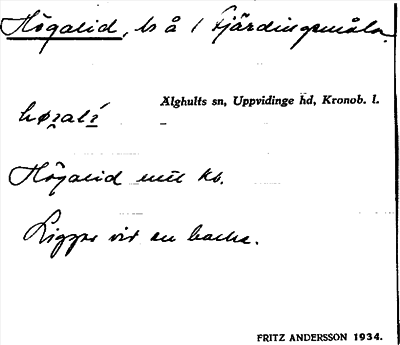 Högalid, ls å 1 Fjärdingsmåla.
Älghults sn, Uppvidinge hd, Kronob. l.
Högalid utel kb.
Ligger vid en backe.
FRITZ ANDERSSON 1934.